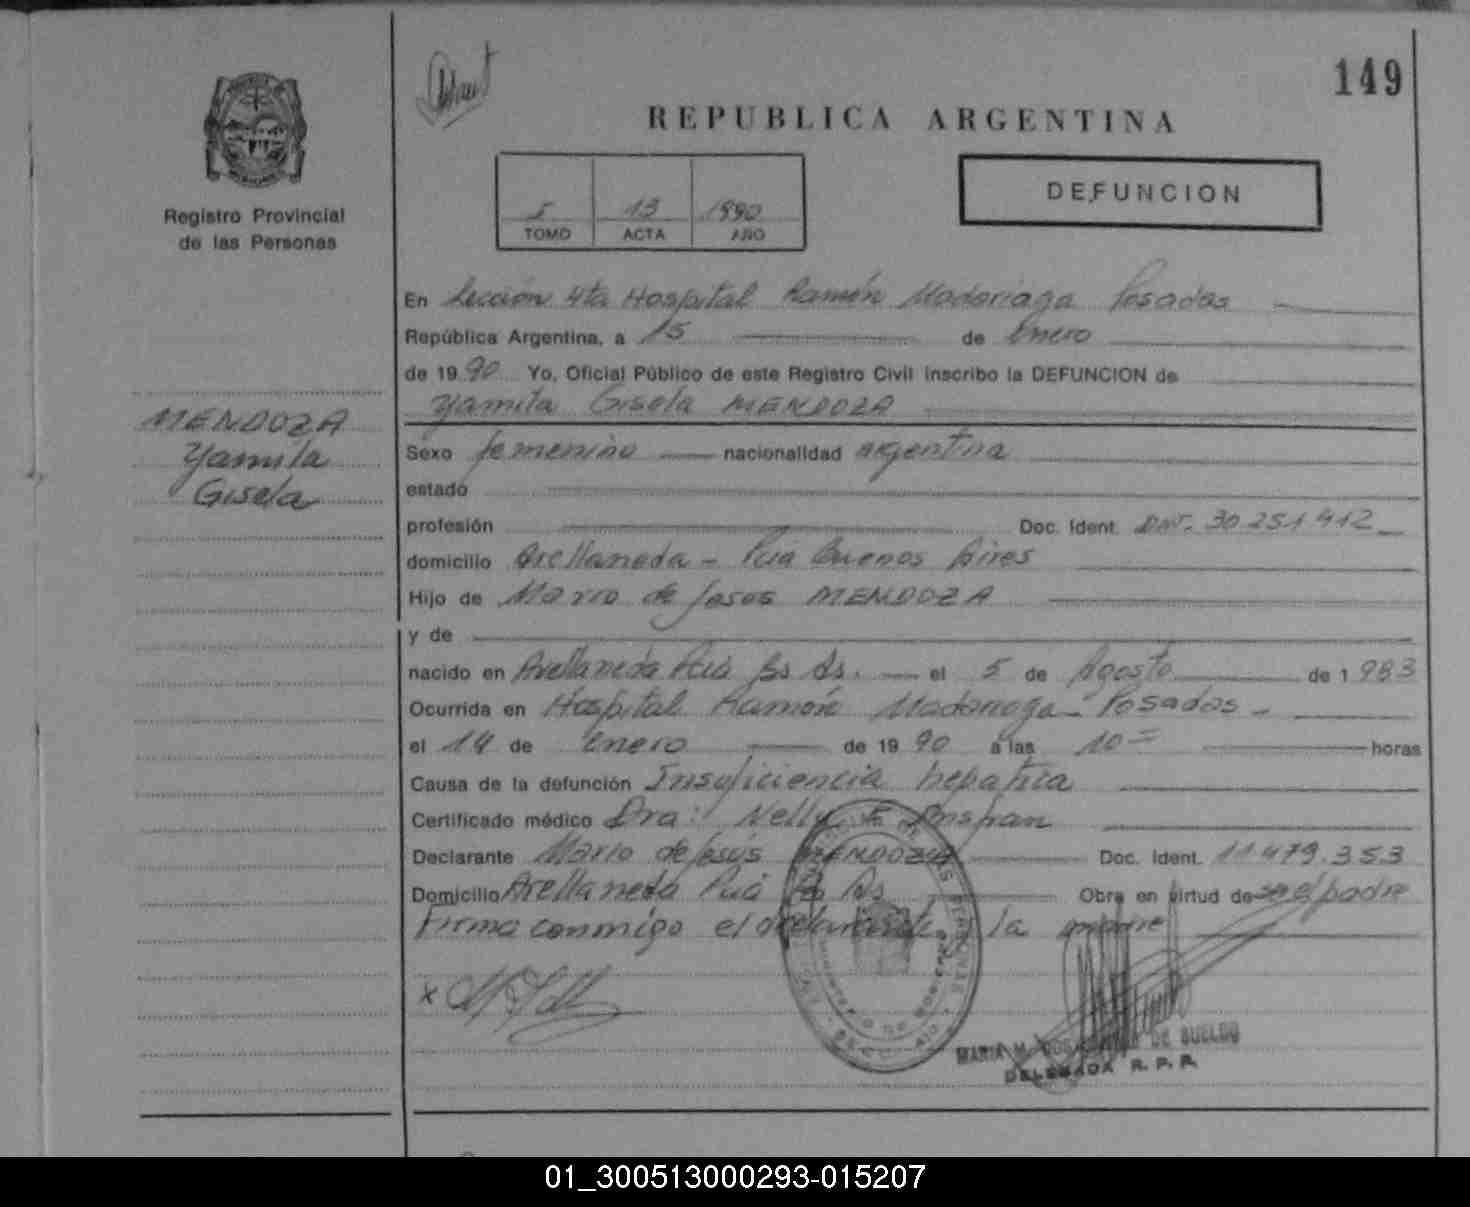 149
REPUBLICA ARGENTINA
Registro Provincial
de las Personas
5 13 1990
TOMO ACTA AÑO
DEFUNCION
En Sección 4ta Hospital Ramón Madariaga Posadas
República Argentina, a 15 de Enero
de 1990 Yo, Oficial Público de este Registro Civil inscribo la DEFUNCION de
Yamila Gisela MENDOZA
MENDOZA
Yamila
Gisela
Sexo femenino nacionalidad argentina
estado
profesión Doc. Ident. DNI. 30.251.412
domicilio Avellaneda - Pcia Buenos Aires
Hijo de Mario de Jesus MENDOZA
y de
nacido en Avellaneda Pcia Bs As. el 5 de Agosto de 1983
Ocurrida en Hospital Ramón Madariaga - Posadas -
el 14 de Enero de 1990 a las 10 horas
Causa de la defunción Insuficiencia hepatica
Certificado médico Dra: Nelly F.
Declarante Mario de Jesús MENDOZA Doc. Ident. 11.479.353
Domicilio Avellaneda Pcia Bs As Obra en virtud de ser el padre
Firma conmigo el declarante
MARIA DE SUELDO
DELEGADA R. P. P.
01_300513000293-015207